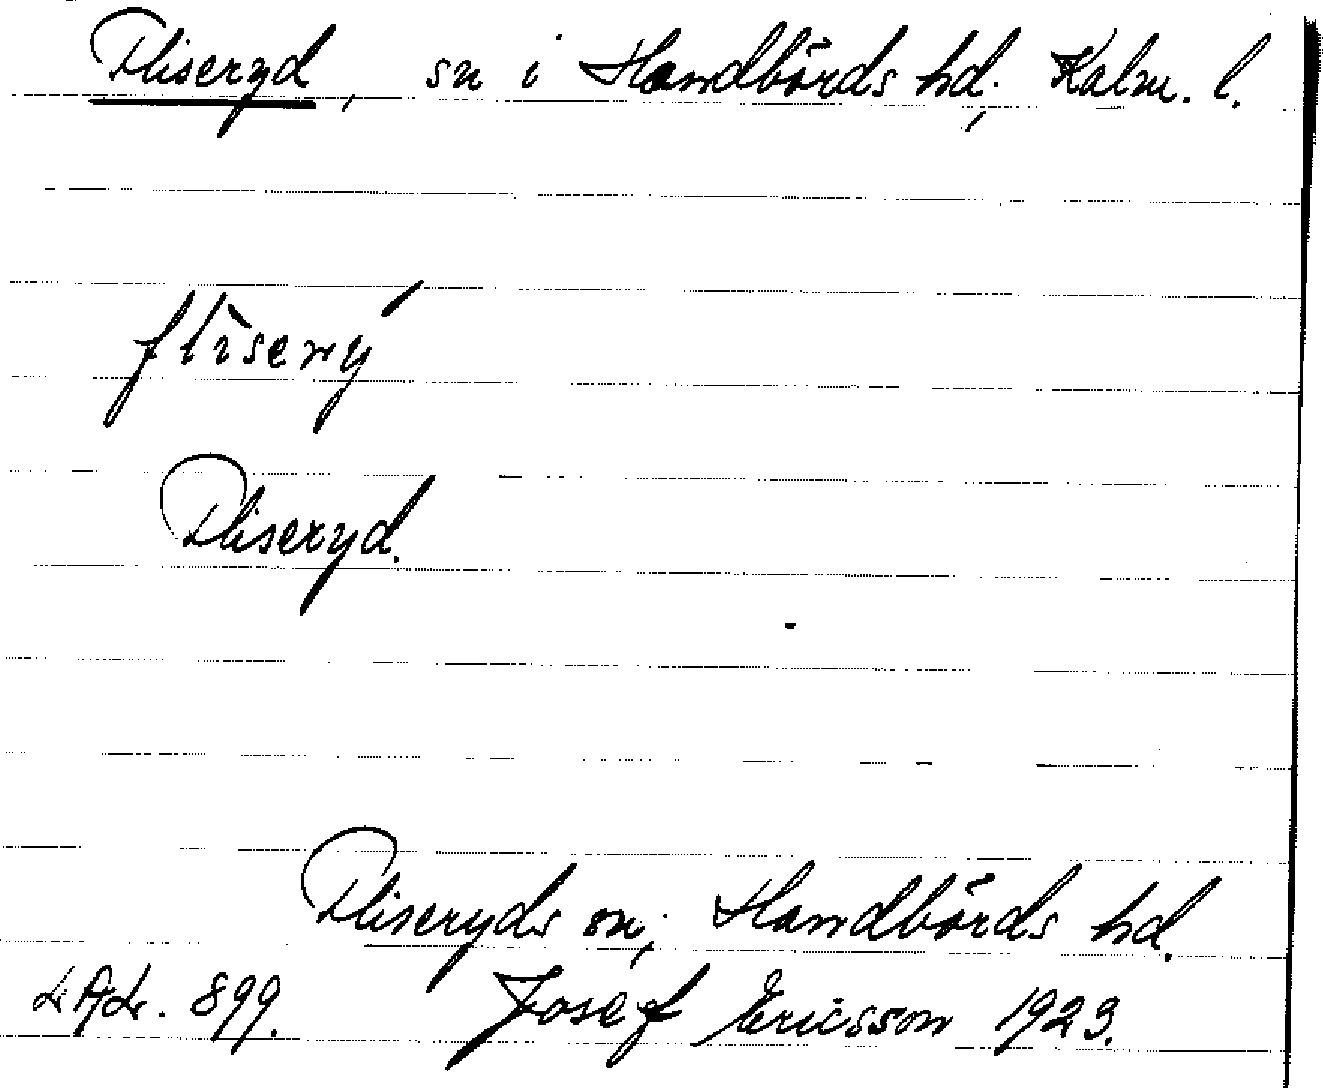 Fliseryd, sn i Handbörds hd, Kalm. l.
flisery
Fliseryd.
Fliseryds sn, Handbörds hd.
Josef Ericsson 1923.